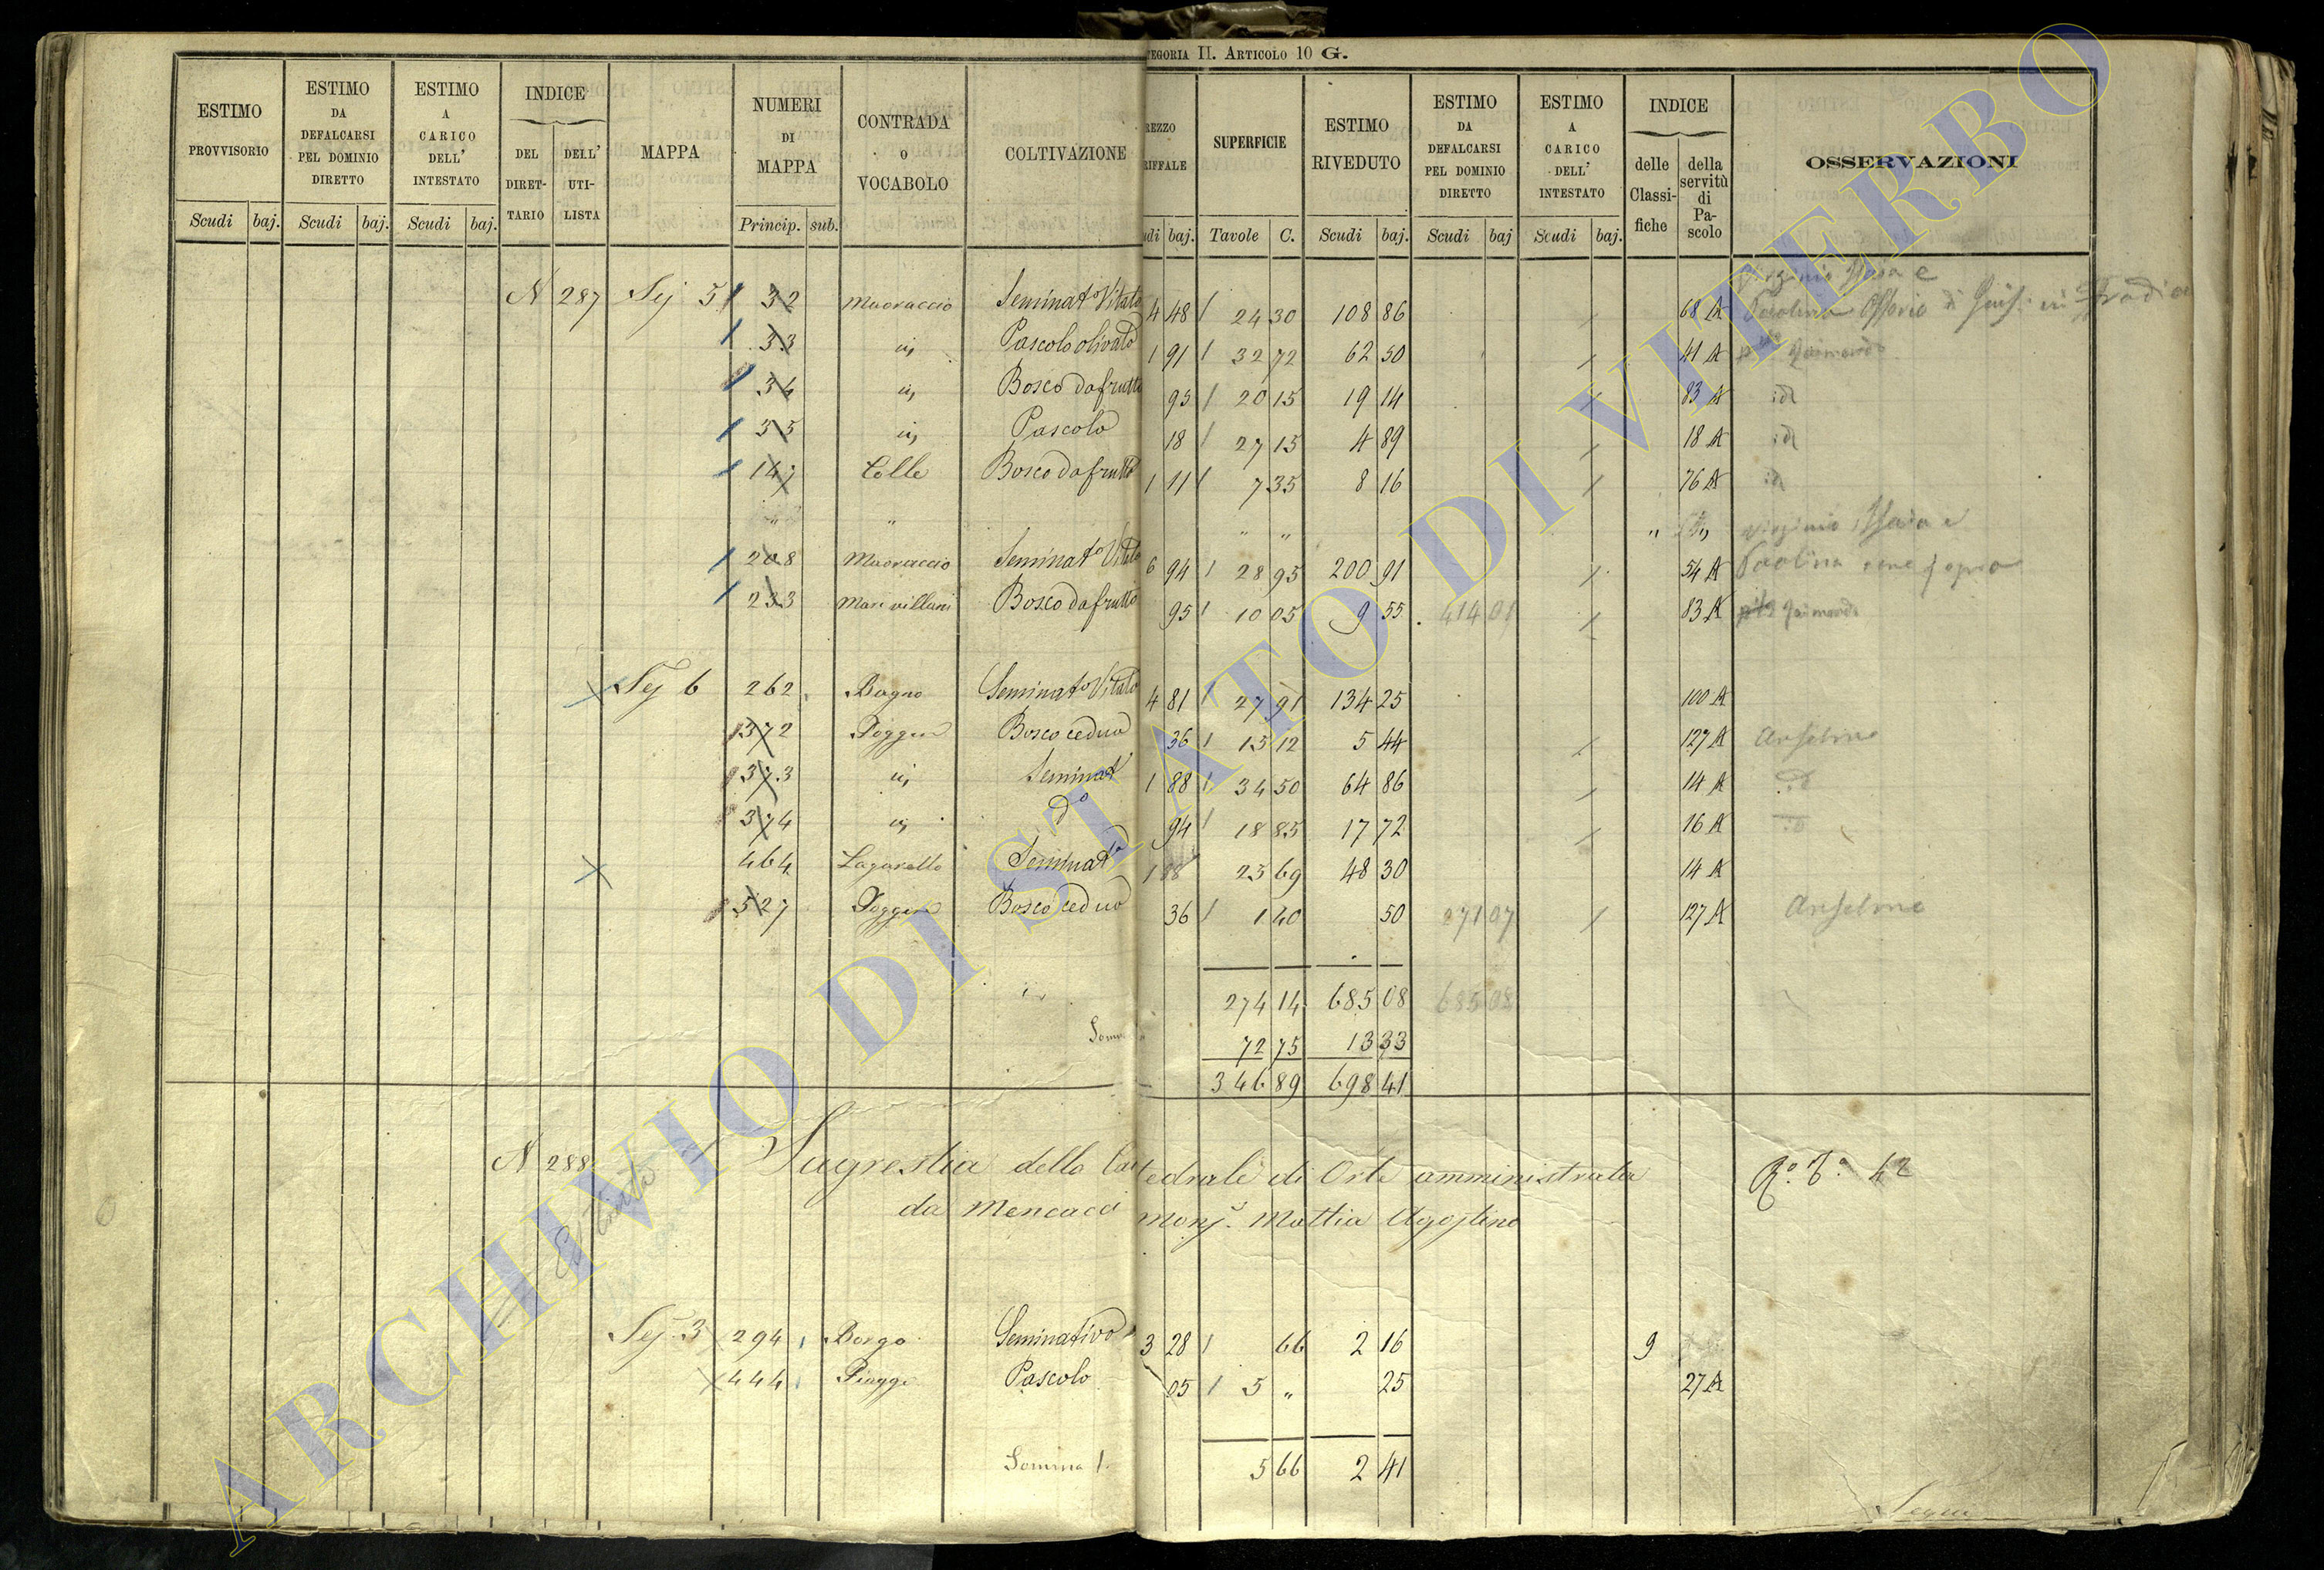 CATEGORIA II. ARTICOLO 10 G.
ESTIMO PROVVISORIO
Scudi baj.
ESTIMO DA DEFALCARSI PEL DOMINIO DIRETTO
Scudi baj.
ESTIMO A CARICO DELL' INTESTATO
Scudi baj.
INDICE
DEL DIRETTARIO
DELL' UTILISTA
MAPPA
NUMERI DI MAPPA
Princip. sub.
CONTRADA O VOCABOLO
COLTIVAZIONE
REZZO RIFFALE
udi baj.
SUPERFICIE
Tavole C.
ESTIMO RIVEDUTO
Scudi baj.
ESTIMO DA DEFALCARSI PEL DOMINIO DIRETTO
Scudi baj
ESTIMO A CARICO DELL' INTESTATO
Scudi baj.
INDICE
delle Classifiche
della servitù di Pascolo
OSSERVAZIONI
N 287 Sez 5 32 Seminato Vitato 4 48 24 30 108 86 68 A
33 Pascolo olivato 1 91 32 72 62 50 41 A
34 Bosco da frutto 95 20 15 19 14 83 A id
35 Pascolo 18 27 15 4 89 18 A id
147 Colle Bosco da frutto 1 11 7 35 8 16 76 A id
" " " " "
208 Seminato Vitato 6 94 28 95 200 91 54 A
233 Bosco da frutto 95 10 05 9 55 414 01 83 A
Sez 6 262 Bagno Seminato Vitato 4 81 27 91 134 25 100 A
372 Poggio Bosco ceduo 36 15 12 5 44 127 A Anselmo
373 Seminato 1 88 34 50 64 86 14 A id
374 do 94 18 85 17 72 16 A id
464 Seminato 1 88 25 69 48 30 14 A
527 Poggio Bosco ceduo 36 1 40 50 271 07 127 A Anselmo
274 14 685 08 685 08
Somma 72 75 13 33
346 89 698 41
N 288 Sagrestia della Cattedrale di Orte amministrata
da Mencacci monsr. Mattia Agostino
Estinta
Sez. 3 294 Borgo Seminativo 3 28 66 2 16 9
444 Piagge Pascolo 05 5 " 25 27 A
Somma 5 66 2 41
Segue
ARCHIVIO DI STATO DI VITERBO